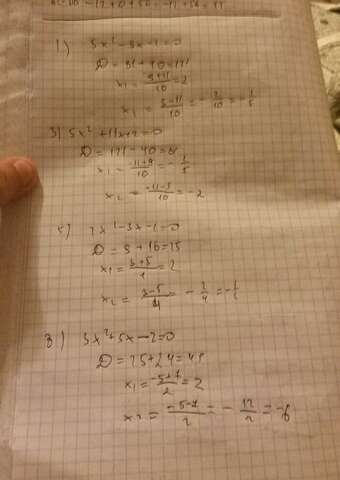 1) 5x² - 9x - 2 = 0
D = 81 + 40 = 121
x₁ = 9+11/10 = 2
x₂ = 9-11/10 = -2/10 = -1/5
3) 5x² + 11x + 2 = 0
D = 121 - 40 = 81
x₁ = -11+9/10 = -1/5
x₂ = -11-9/10 = -2
2x² - 3x - 2 = 0
D = 9 + 16 = 25
x₁ = 3+5/4 = 2
x₂ = 3-5/4 = -2/4 = -1/2
3x² + 5x - 2 = 0
D = 25 + 24 = 49
x₁ = -5+7/2 = 2
x₂ = -5-7/2 = -12/2 = -6